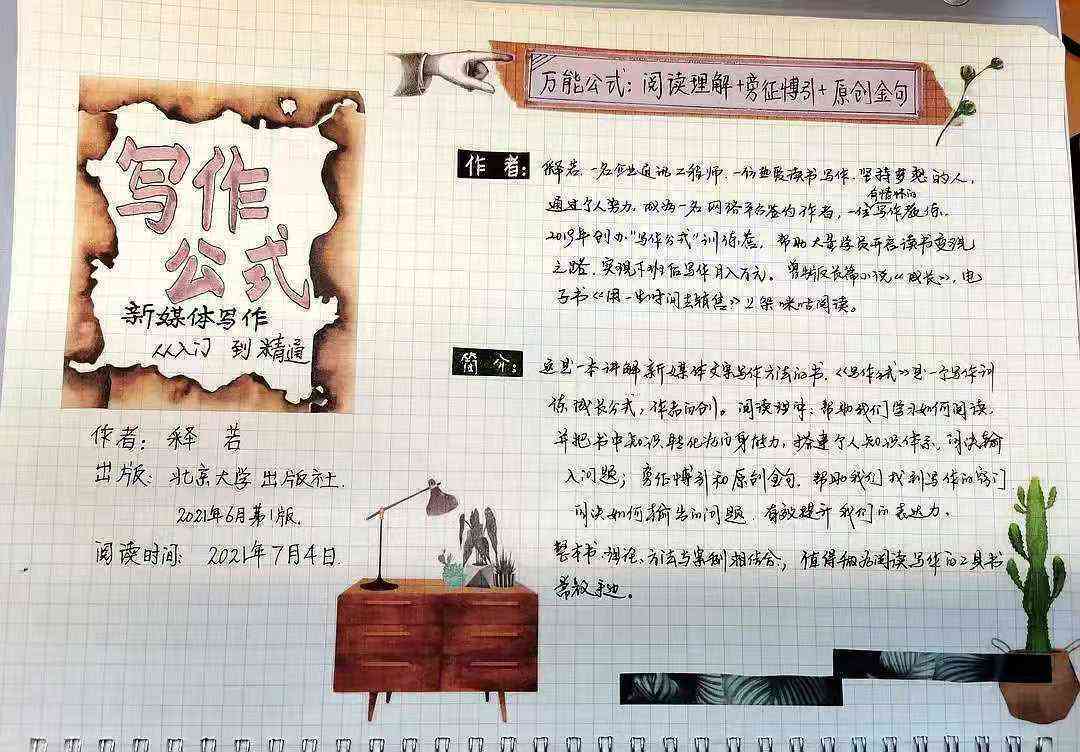 写作
公式
新媒体写作
从入门 到精通
作者: 释 若
出版: 北京大学出版社.
2021年6月第1版.
阅读时间: 2021年7月4日.
万能公式: 阅读理解+旁征博引+原创金句
作者:
释若 一名企业通讯工程师, 一位热爱读书写作, 坚持梦想的人,
通过个人努力, 成为一名网络平台签约作者, 一位有情怀的写作教练.
2019年创办"写作公式"训练营, 帮助大量学员开启读书变现
之路, 实现下班后写作月入万元. 曾出版长篇小说《成长》, 电
子书《用一生时间去销售》上架咪咕阅读。
简介:
这是一本讲解新媒体文案写作方法的书,《写作公式》是一个写作训
练成长公式, 作者的 阅读理解, 帮助我们学习如何阅读,
并把书中知识转化为自身能力, 搭建个人知识体系, 解决输
入问题; 旁征博引和原创金句, 帮助我们找到写作的窍门
解决如何输出的问题, 有效提升我们的表达力.
整本书 理论、方法与案例相结合, 值得做为阅读写作的工具书
常放手边。